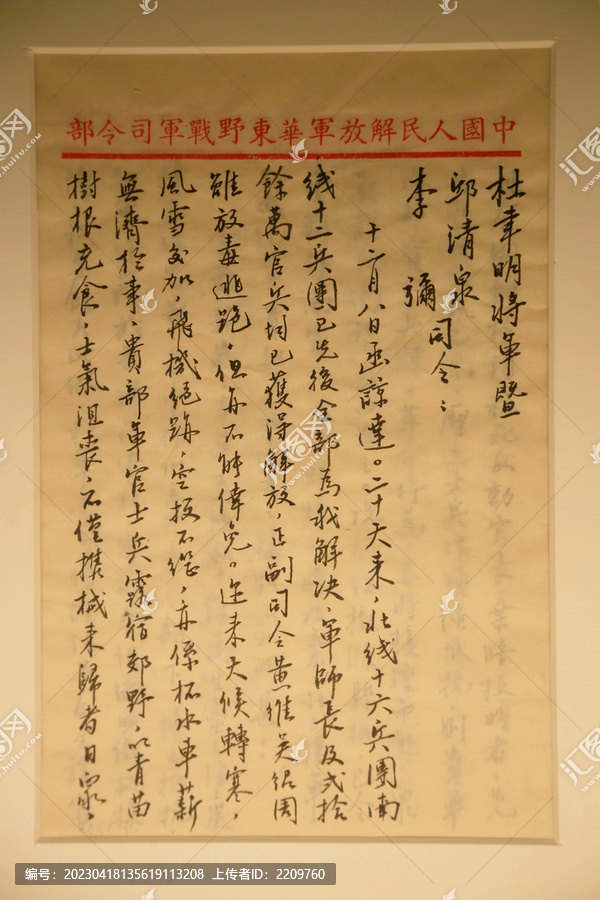 中國人民解放軍華東野戰軍司令部
杜聿明將軍暨
邱清泉
李彌司令：
十二月八日函諒達。二十天来，北线十六兵團南
线十二兵團已先後全部為我解决，軍師長及弍拾
餘萬官兵均已獲得解放，正副司令黄維吴绍周
雖放毒逃跑，但亦不能倖免。近来天候轉寒，
風雪交加，飛機绝跡，空投不继，亦係杯水車薪
無濟於事，貴部軍官士兵露宿郊野，以青苗
樹根充食，士氣沮喪，不僅携械来歸者日眾，
汇图网
www.huitu.com
编号：20230418135619113208 上传者ID：2209760